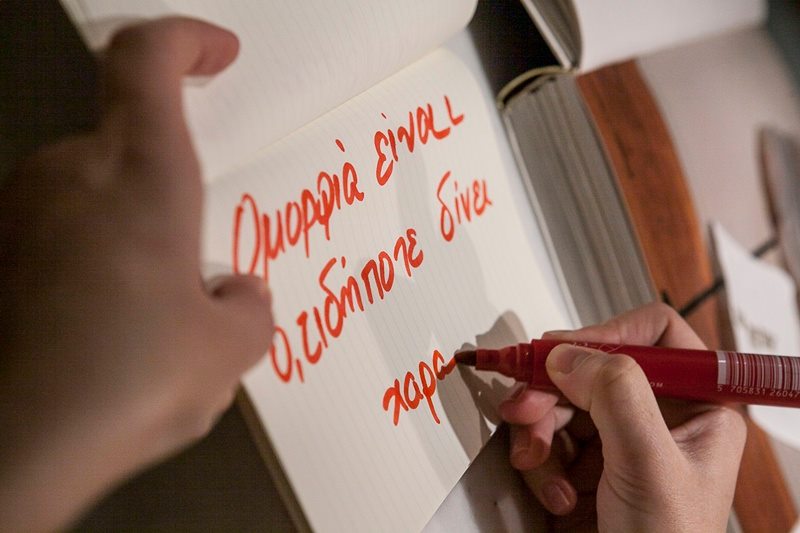 Ομορφιά είναι
ό,τιδήποτε δίνει
χαρα
5 705831 26047